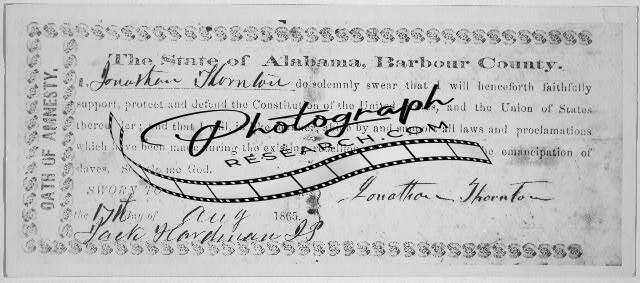 OATH OF AMNESTY.
The State of Alabama, Barbour County.
I, Jonathan Thornton do solemnly swear that I will henceforth faithfully
support, protect and defend the Constitution of the United States, and the Union of States
and that I will, by and all laws and proclamations
which have been made during the existing emancipation of
slaves. So me God.
SWORN TO Jonathan Thornton
the 17th day of Aug 1865.
Jack Hardman JP
Photograph
RESEARCH.COM